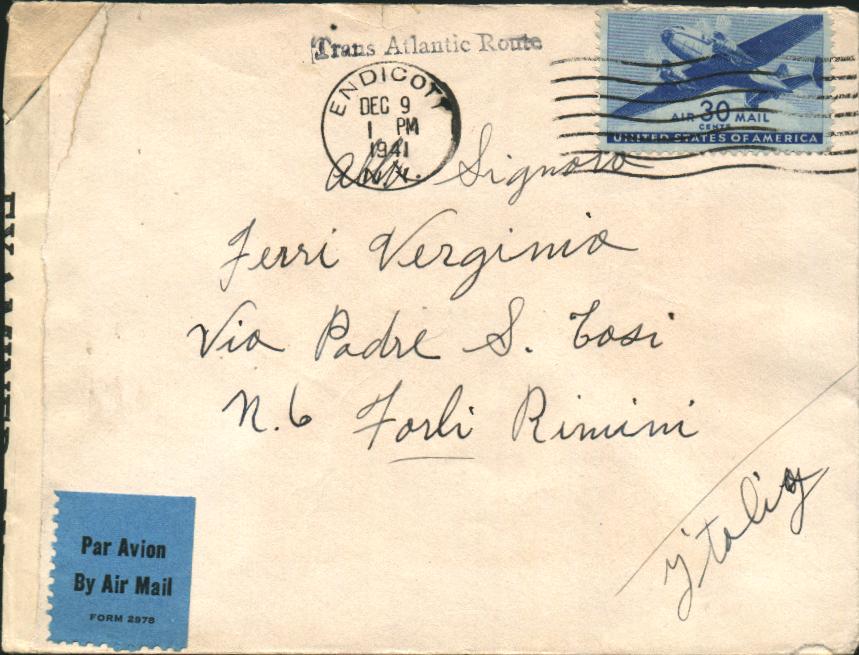 Trans Atlantic Route
ENDICOTT
DEC 9
1 PM
1941
N.Y.
AIR 30 MAIL
CENTS
UNITED STATES OF AMERICA
Alla. Signora
Ferri Verginia
Via Padre S. Tosi
N. 6 Forli Rimini
Italia
EXAMINED
Par Avion
By Air Mail
FORM 2978